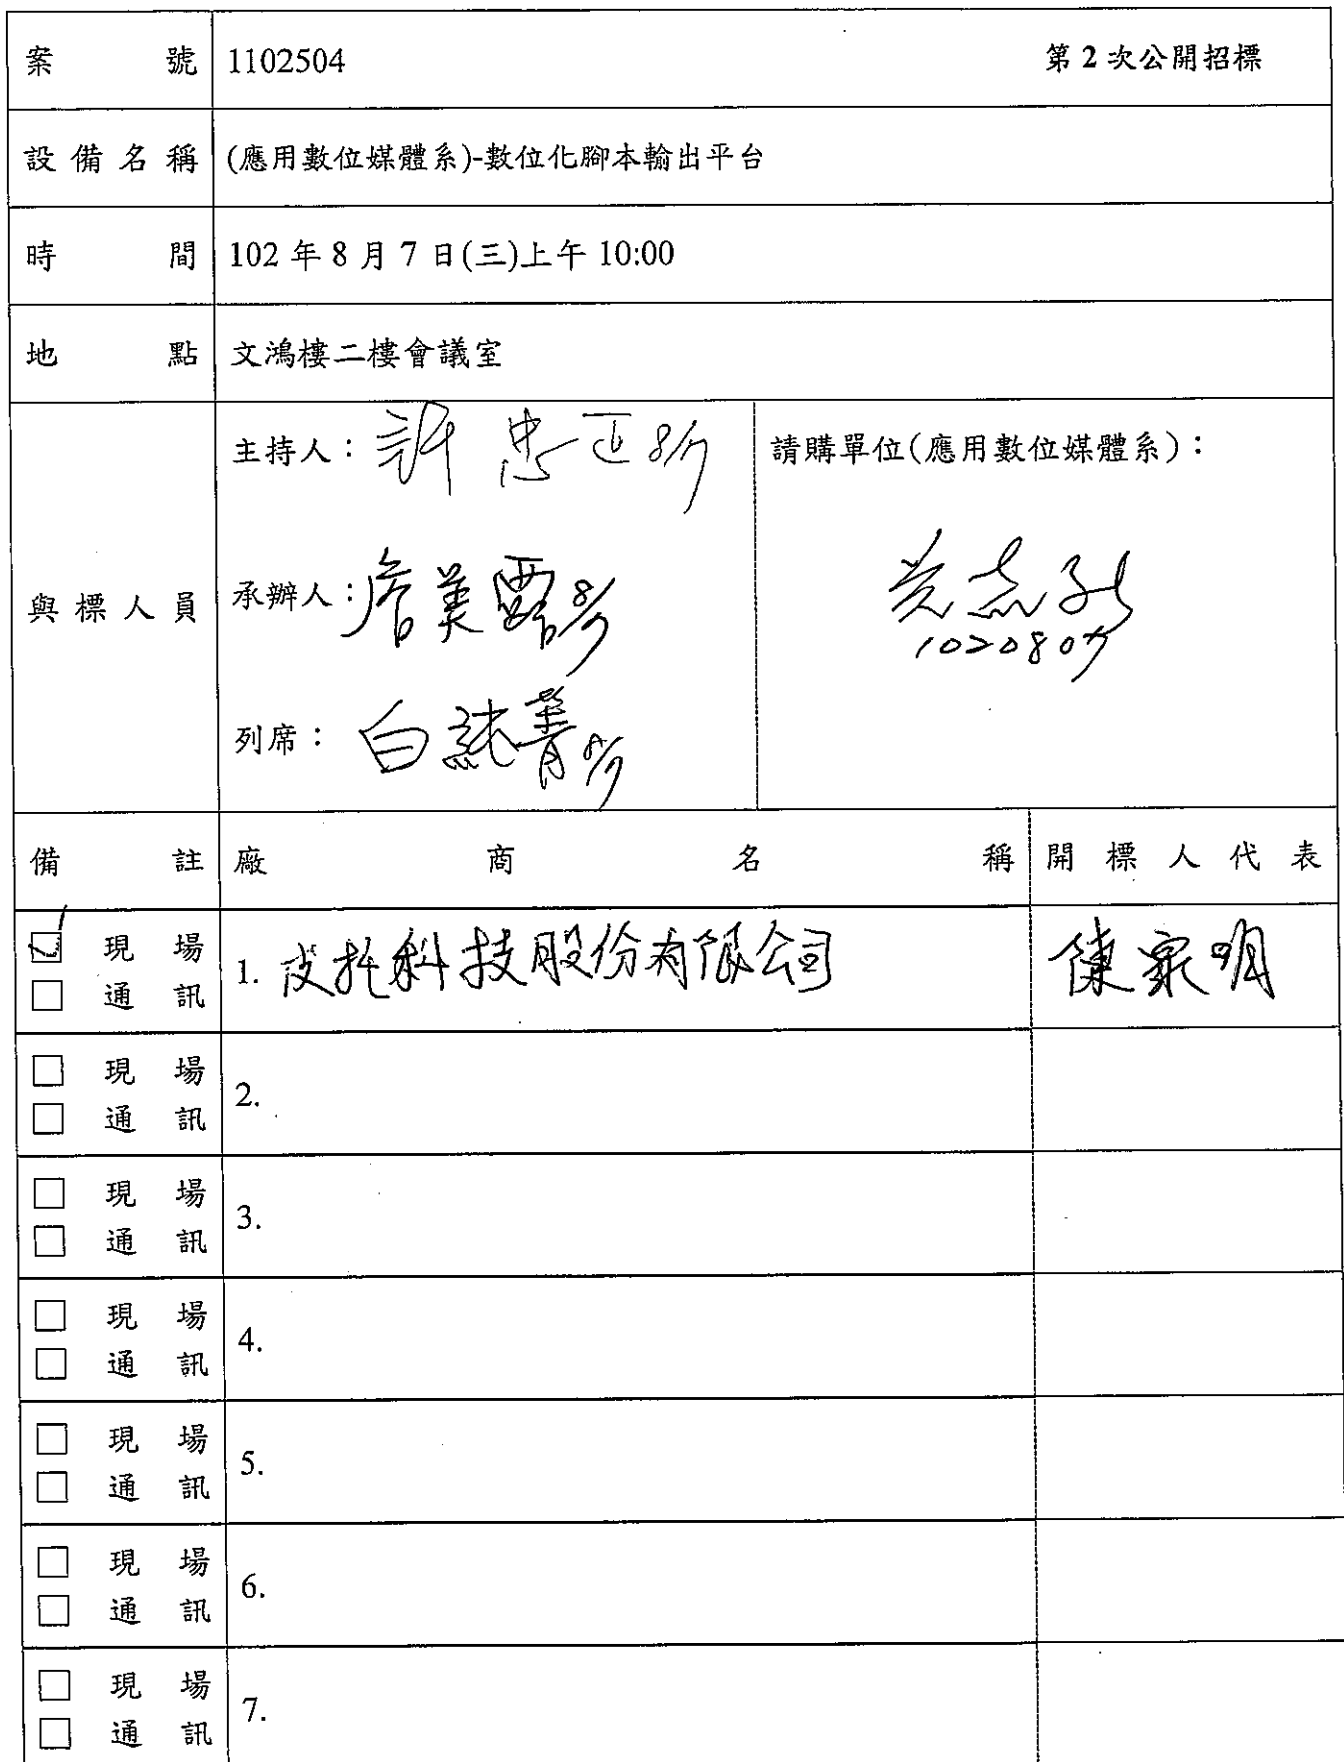 案號 1102504 第 2 次公開招標
設備名稱 (應用數位媒體系)-數位化腳本輸出平台
時間 102 年 8 月 7 日(三)上午 10:00
地點 文鴻樓二樓會議室
與標人員
主持人：許忠正 8/7
承辦人：詹美露 8/7
列席：白 菁 8/7
請購單位(應用數位媒體系)：
1020807
備註 廠商名稱 開標人代表
現場
通訊
1. 皮托科技股份有限公司 陳家明
現場
通訊
2.
現場
通訊
3.
現場
通訊
4.
現場
通訊
5.
現場
通訊
6.
現場
通訊
7.